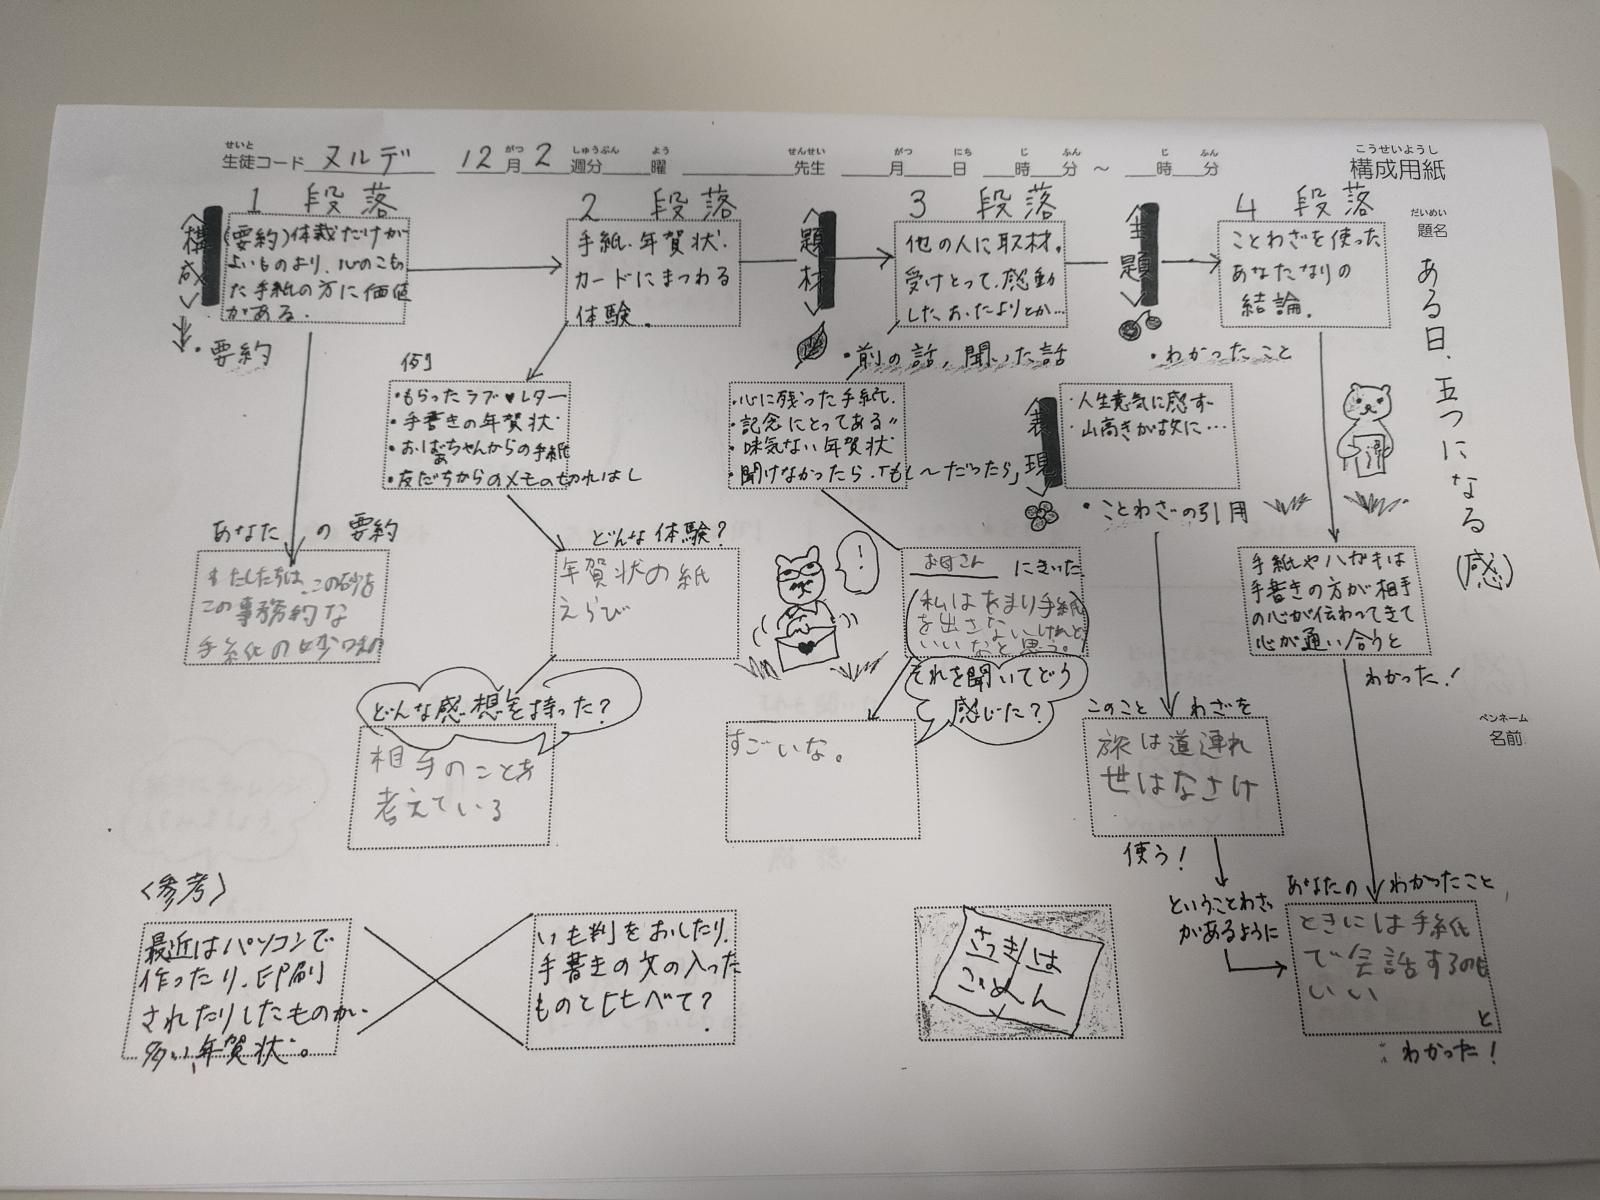 せいと がつ しゅうぶん よう せんせい がつ にち じ ふん じ ふん こうせいようし
生徒コード ヌルデ 12月2週分 曜 先生 月 日 時 分 ～ 時 分 構成用紙
だいめい
題名
ある日、五つになる(感)
ペンネーム
名前
1 段落
〈構成〉
(要約)体裁だけが
よいものより、心のこもっ
た手紙の方に価値
がある。
・要約
あなたの要約
この事務的な
手紙の
2 段落
手紙・年賀状・
カードにまつわる
体験。
例
・もらったラブ♥レター
・手書きの年賀状
・おばあちゃんからの手紙
・友だちからのメモの切れはし
どんな体験?
年賀状の紙
えらび
どんな感想を持った?
相手のことを
考えている
〈題材〉
3 段落
他の人に取材。
受けとって、感動
した、おたよりとか…
・前の話、聞いた話
・心に残った手紙。
・記念にとってある〃
・味気ない年賀状
・聞けなかったら、「もし～だったら」
!
お母さん にきいた
(私はあまり手紙
を出さないけれど、
いいなと思う。)
それを聞いてどう
感じた?
すごいな。
〈主題〉
・わかったこと
〈表現〉
・人生意気に感ず
・山高きが故に…
・ことわざの引用
このことわざを
旅は道連れ
世はなさけ
使う!
ということわざ
があるように
4 段落
ことわざを使った
あなたなりの
結論。
手紙やハガキは
手書きの方が相手
の心が伝わってきて
心が通い合うと
わかった!
あなたのわかったこと
ときには手紙
で会話するのも
いい
と
わかった!
〈参考〉
最近はパソコンで
作ったり、印刷
されたりしたものが
多い年賀状。
いも判をおしたり、
手書きの文の入った
ものと比べて?
さっきは
ごめーん